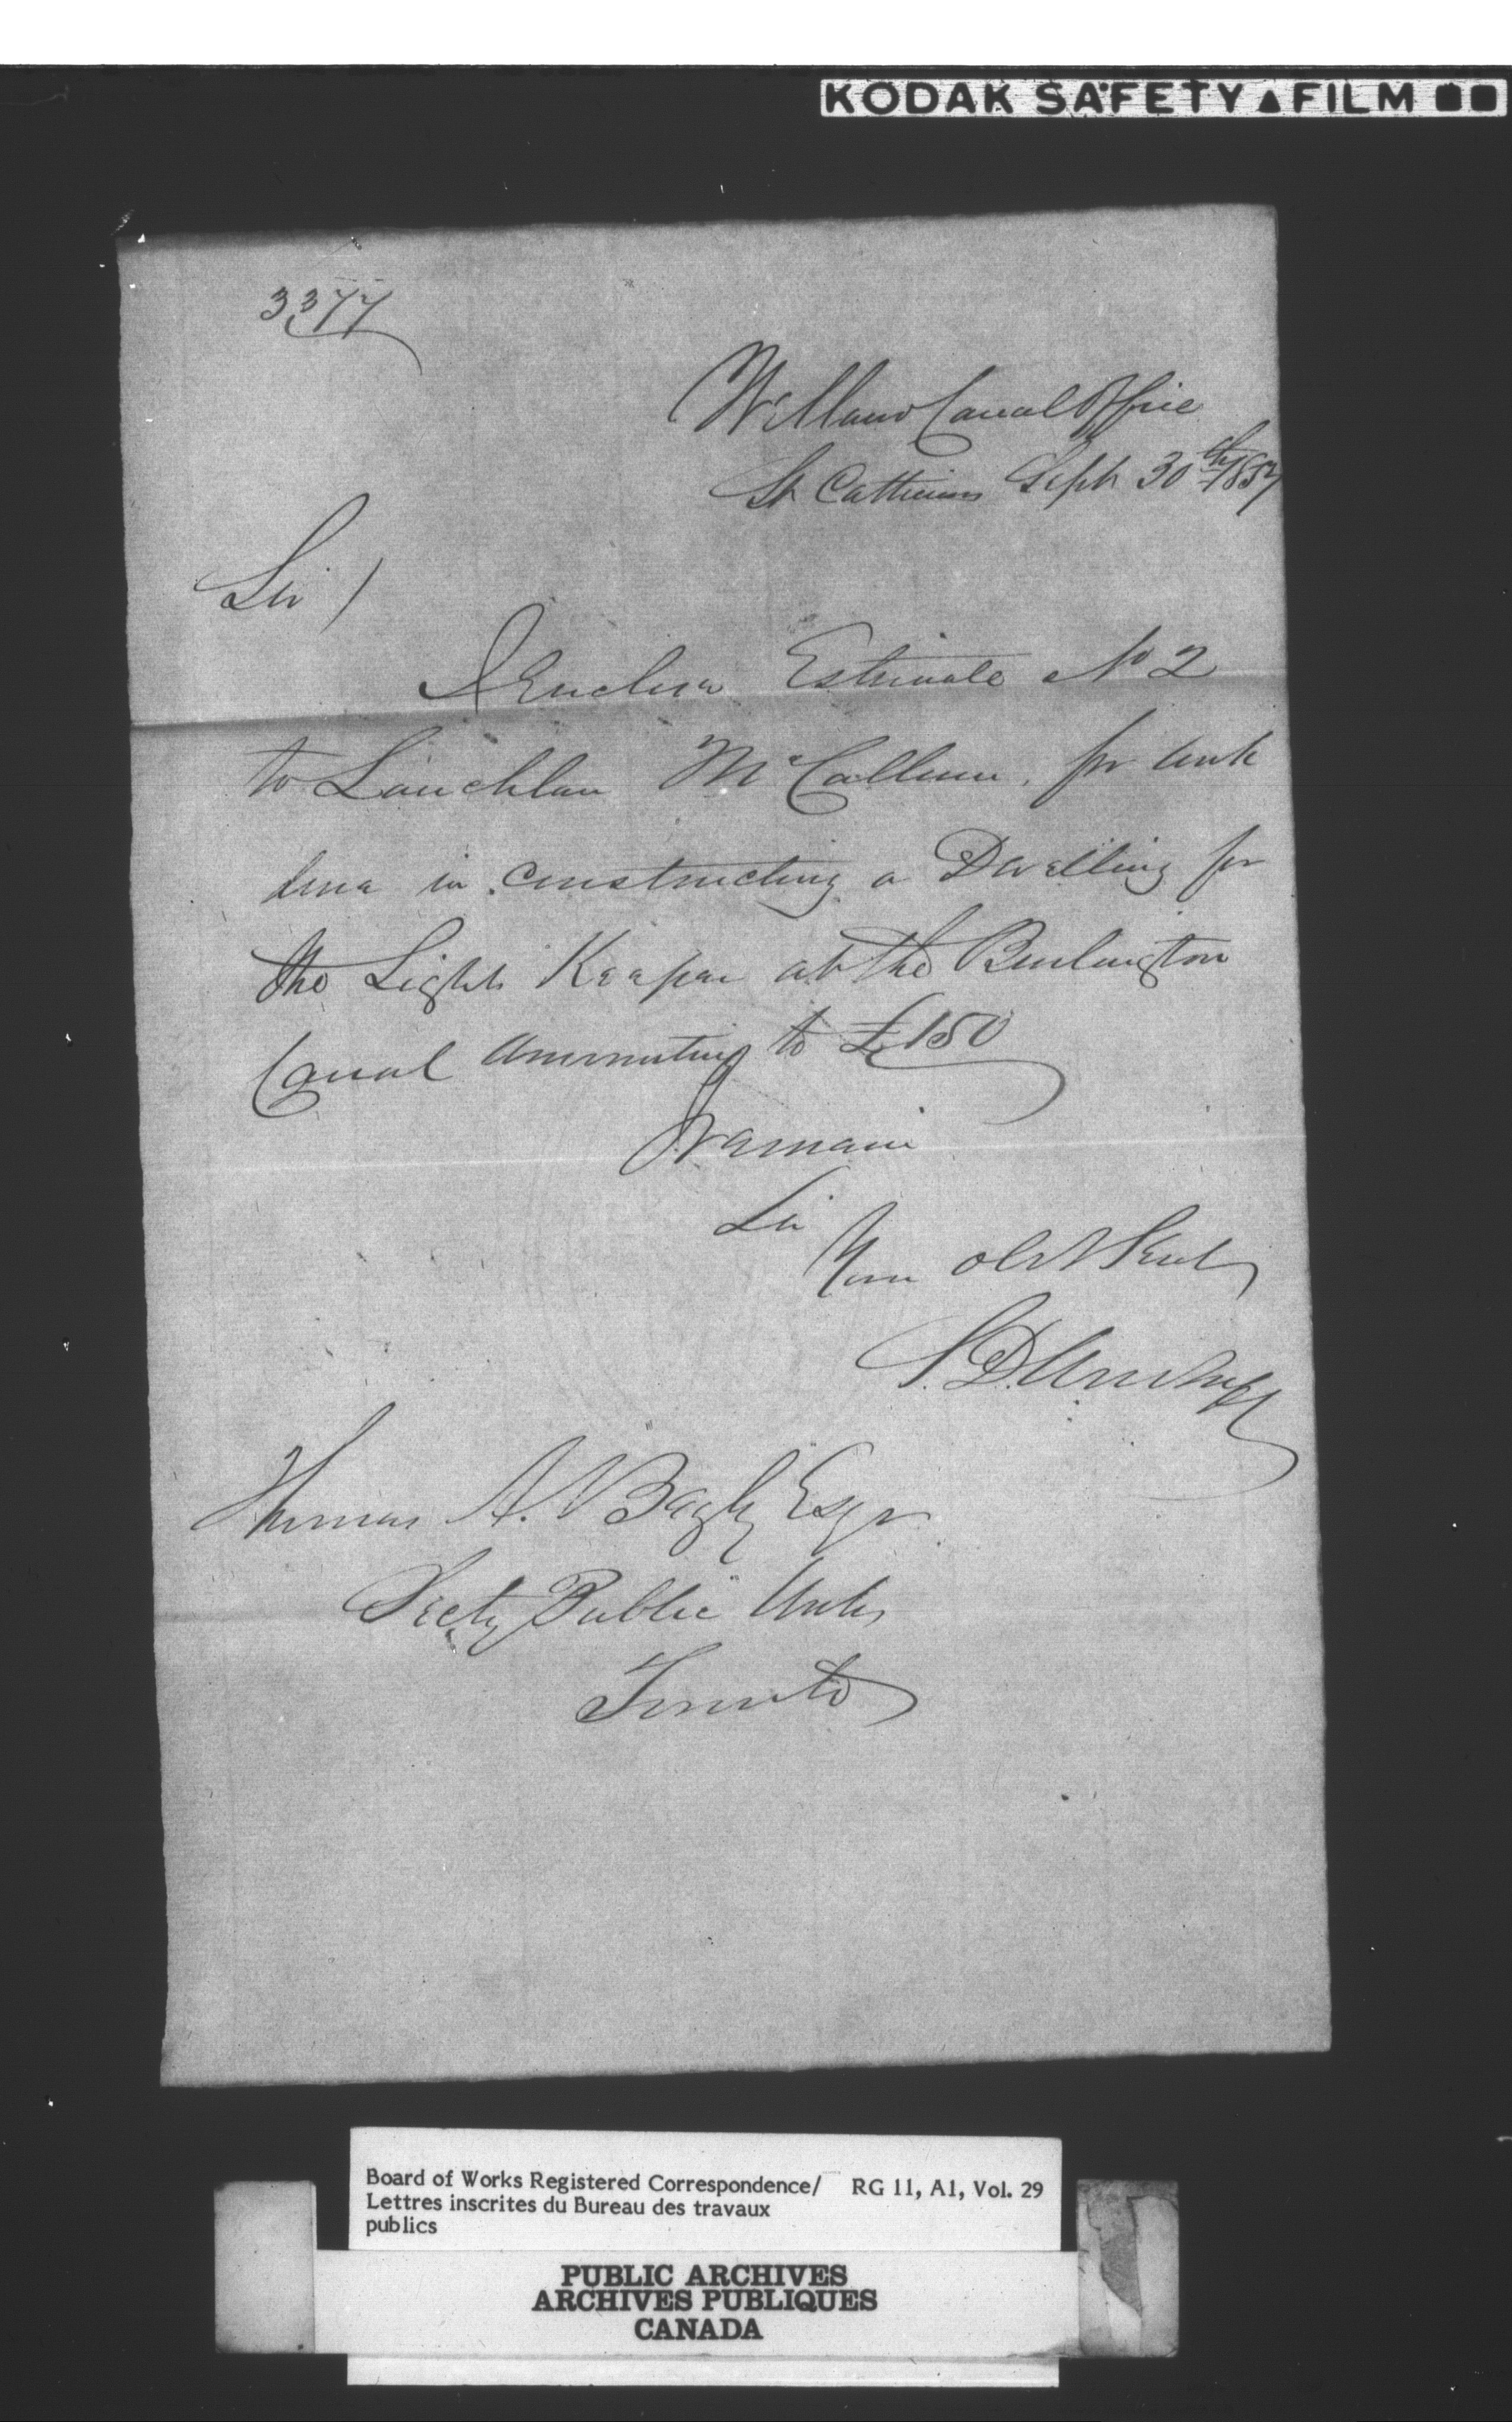 KODAK SAFETY FILM
3377
Welland Canal Office
St Catherines Sept 30th 1857
Sir /
I Enclose Estimate No 2
to Lauchlan McCallum, for work
done in constructing a Dwelling for
the Light Keeper at the Burlington
Canal Amounting to £150
I remain
Sir
Your Obt Servt
S. D. Woodruff
Thomas A. Begly Esqr
Secty Public Works
Toronto
Board of Works Registered Correspondence/ RG 11, A1, Vol. 29
Lettres inscrites du Bureau des travaux
publics
PUBLIC ARCHIVES
ARCHIVES PUBLIQUES
CANADA